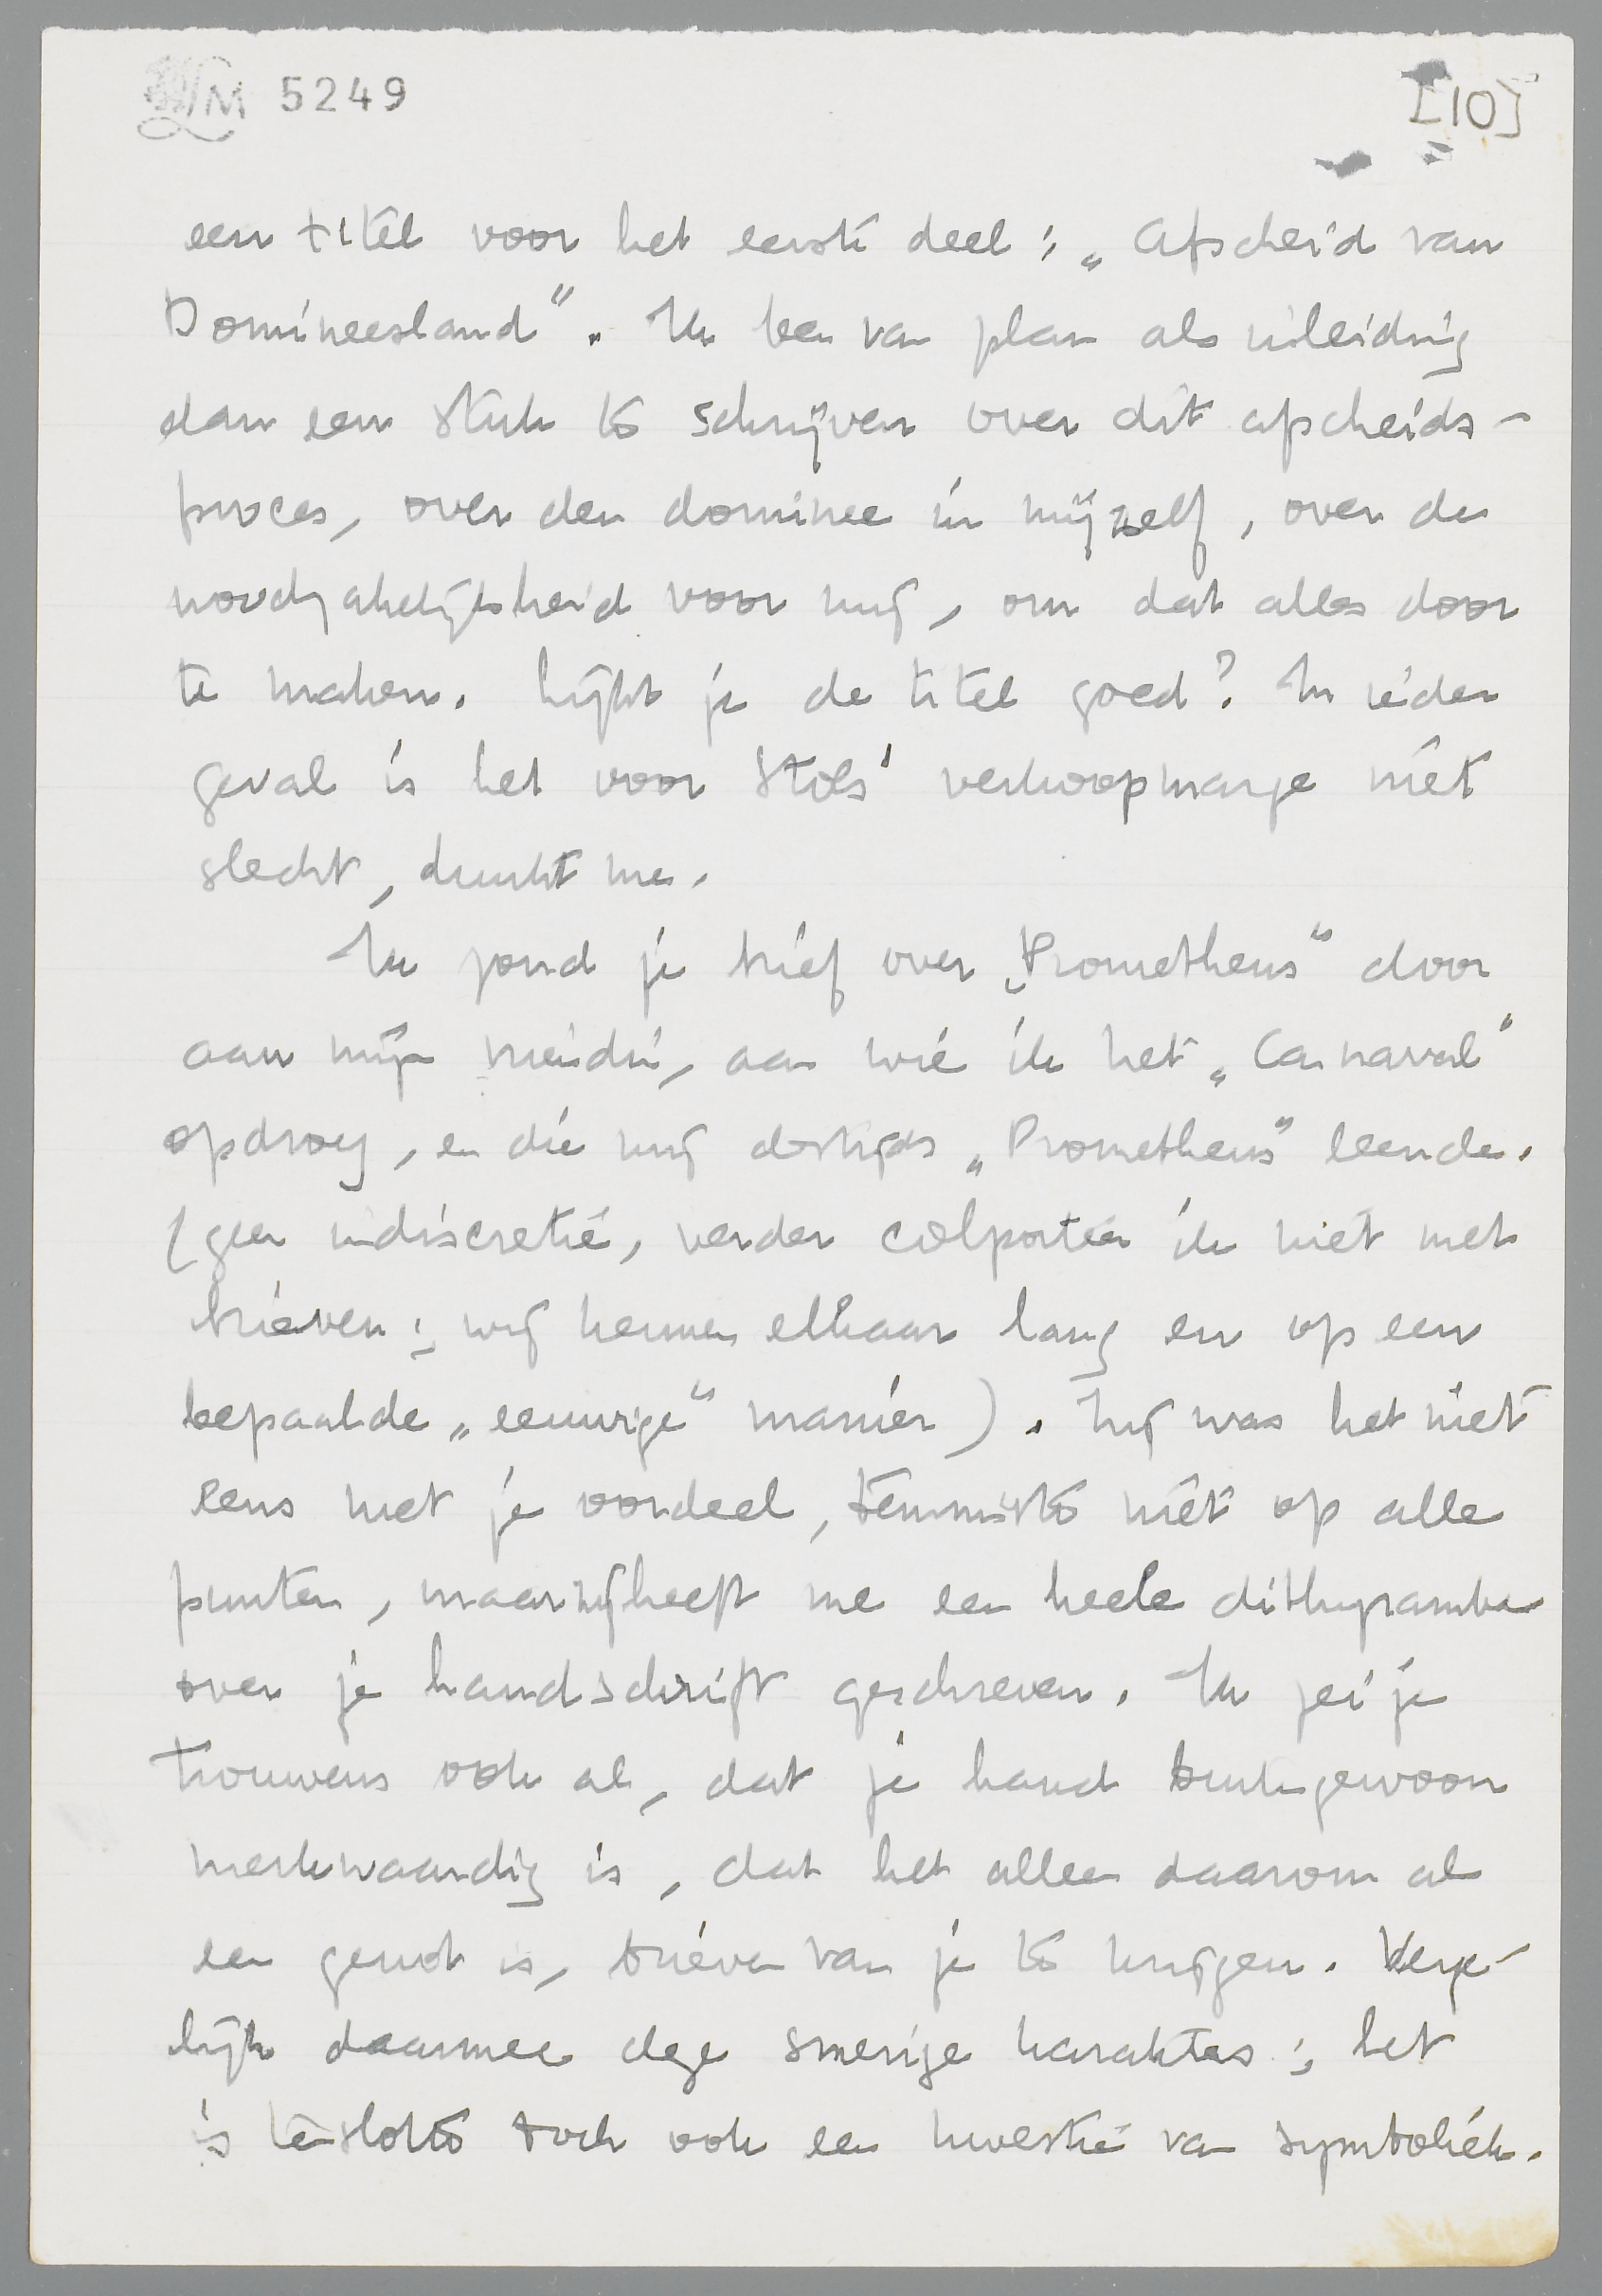 M 5249
[10]
een titel voor het eerste deel: „Afscheid van
Domineesland”. Ik ben van plan als inleiding
dan een stuk te schrijven over dit afscheids-
proces, over den dominee in mijzelf, over de
noodzakelijkheid voor mij, om dat alles door
te maken. Lijkt je de titel goed? In ieder
geval is het voor Stols' verkoopmarge niet
slecht, dunkt me.
Ik zond je brief over „Prometheus” door
aan mijn vriendin, aan wie ik het „Carnaval”
opdroeg, en die mij destijds „Prometheus” leende.
(geen indiscretie, verder colporteer ik niet met
brieven; wij kennen elkaar lang en op een
bepaalde „eeuwige” manier). Zij was het niet
eens met je oordeel, tenminste niet op alle
punten, maar zij heeft me een heele dithyrambe
over je handschrift geschreven. Ik zei je
trouwens ook al, dat je hand buitengewoon
merkwaardig is, dat het alleen daarom al
een genot is, brieven van je te krijgen. Verge-
lijk daarmee deze smerige karakters; het
is tenslotte toch ook een kwestie van symboliek.